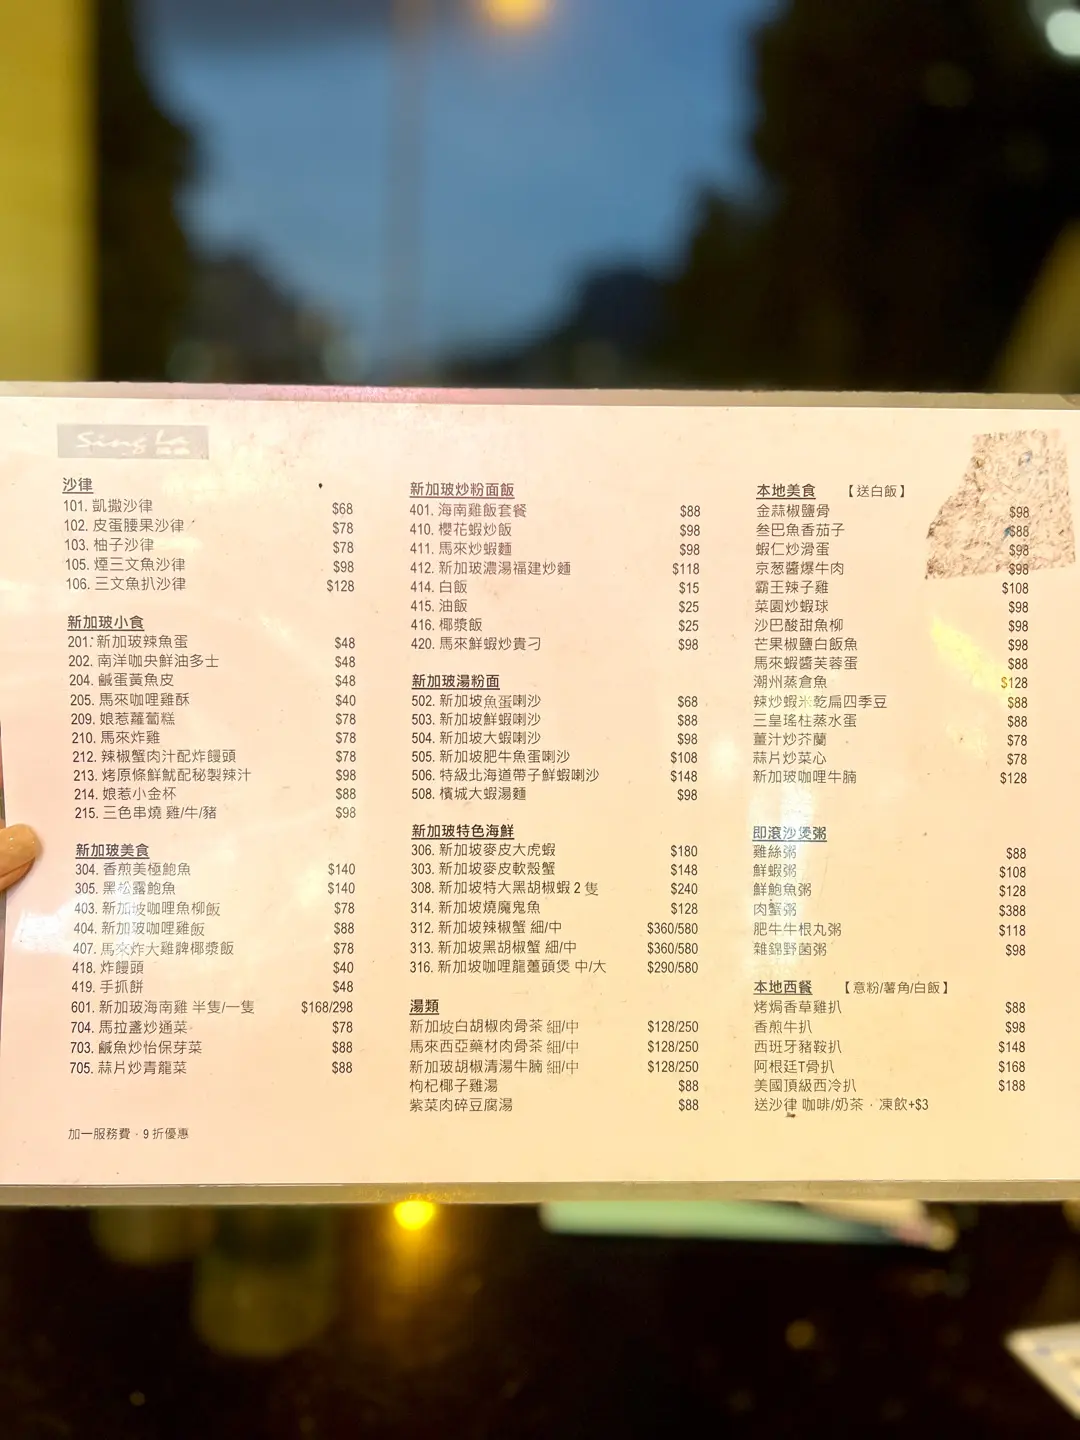 Sing La
沙律
101. 凱撒沙律 $68
102. 皮蛋腰果沙律 $78
103. 柚子沙律 $78
105. 煙三文魚沙律 $98
106. 三文魚扒沙律 $128
新加玻小食
201. 新加玻辣魚蛋 $48
202. 南洋咖央鮮油多士 $48
204. 鹹蛋黃魚皮 $48
205. 馬來咖哩雞酥 $40
209. 娘惹蘿蔔糕 $78
210. 馬來炸雞 $78
212. 辣椒蟹肉汁配炸饅頭 $78
213. 烤原條鮮魷配秘製辣汁 $98
214. 娘惹小金杯 $88
215. 三色串燒 雞/牛/豬 $98
新加玻美食
304. 香煎美極鮑魚 $140
305. 黑松露鮑魚 $140
403. 新加坡咖哩魚柳飯 $78
404. 新加玻咖哩雞飯 $88
407. 馬來炸大雞髀椰漿飯 $78
418. 炸饅頭 $40
419. 手抓餅 $48
601. 新加玻海南雞 半隻/一隻 $168/298
704. 馬拉盞炒通菜 $78
703. 鹹魚炒怡保芽菜 $88
705. 蒜片炒青龍菜 $88
加一服務費﹐9 折優惠
新加玻炒粉面飯
401. 海南雞飯套餐 $88
410. 櫻花蝦炒飯 $98
411. 馬來炒蝦麵 $98
412. 新加玻濃湯福建炒麵 $118
414. 白飯 $15
415. 油飯 $25
416. 椰漿飯 $25
420. 馬來鮮蝦炒貴刁 $98
新加玻湯粉面
502. 新加坡魚蛋喇沙 $68
503. 新加坡鮮蝦喇沙 $88
504. 新加坡大蝦喇沙 $98
505. 新加坡肥牛魚蛋喇沙 $108
506. 特級北海道帶子鮮蝦喇沙 $148
508. 檳城大蝦湯麵 $98
新加玻特色海鮮
306. 新加坡麥皮大虎蝦 $180
303. 新加坡麥皮軟殼蟹 $148
308. 新加坡特大黑胡椒蝦 2 隻 $240
314. 新加坡燒魔鬼魚 $128
312. 新加坡辣椒蟹 細/中 $360/580
313. 新加坡黑胡椒蟹 細/中 $360/580
316. 新加坡咖哩龍躉頭煲 中/大 $290/580
湯類
新加坡白胡椒肉骨茶 細/中 $128/250
馬來西亞藥材肉骨茶 細/中 $128/250
新加玻胡椒清湯牛腩 細/中 $128/250
枸杞椰子雞湯 $88
紫菜肉碎豆腐湯 $88
本地美食 【送白飯】
金蒜椒鹽骨 $98
叁巴魚香茄子 $88
蝦仁炒滑蛋 $98
京葱醬爆牛肉 $98
霸王辣子雞 $108
菜園炒蝦球 $98
沙巴酸甜魚柳 $98
芒果椒鹽白飯魚 $98
馬來蝦醬芙蓉蛋 $88
潮州蒸倉魚 $128
辣炒蝦米乾扁四季豆 $88
三皇瑤柱蒸水蛋 $88
薑汁炒芥蘭 $78
蒜片炒菜心 $78
新加玻咖哩牛腩 $128
即滾沙煲粥
雞絲粥 $88
鮮蝦粥 $108
鮮鮑魚粥 $128
肉蟹粥 $388
肥牛牛根丸粥 $118
雜錦野菌粥 $98
本地西餐 【意粉/薯角/白飯】
烤焗香草雞扒 $88
香煎牛扒 $98
西班牙豬鞍扒 $148
阿根廷T骨扒 $168
美國頂級西冷扒 $188
送沙律 咖啡/奶茶﹐凍飲+$3